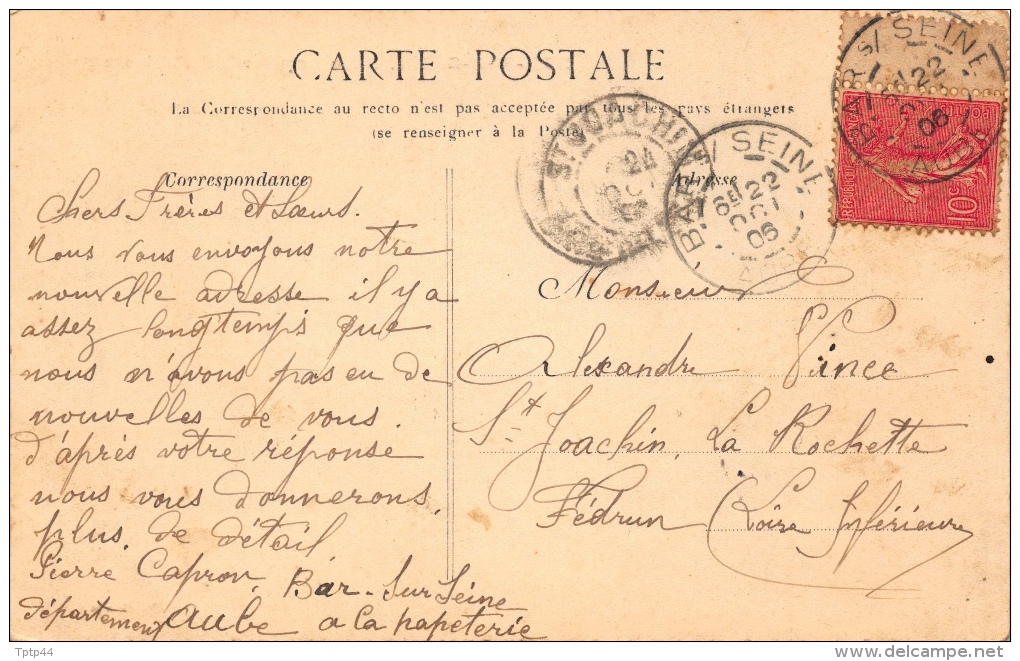 CARTE POSTALE
La Correspondance au recto n'est pas acceptée par tous les pays étrangers
(se renseigner à la Poste)
Correspondance
Adresse
Chers Frères et Sœurs.
Nous vous envoyons notre
nouvelle adresse il y a
assez longtemps que
nous n'avons pas eu de
nouvelles de vous.
d'après votre réponse
nous vous donnerons.
plus. de détail
Pierre Capron, Bar-Sur Seine
département Aube a la papeterie
Monsieur
Alexandre Vince
St Joachin. La Rochette
Fédrun (Loire Inférieure
BAR S/ SEINE
22
06
AUBE
BAR S/ SEINE
6E 22
OCT
06
AUBE
ST JOACHIM
24
10c
Tptp44
delcampe.net